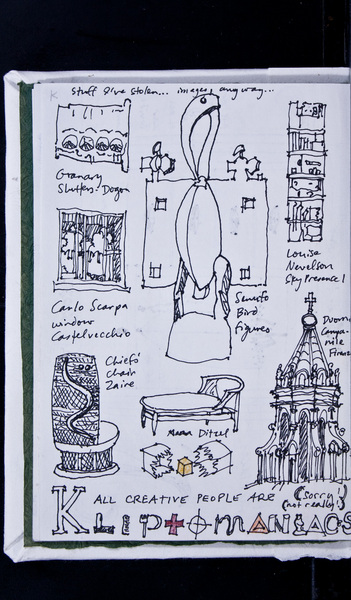 stuff I've stolen... images anyway...
Granary
Shutters. Dogon
Louise
Nevelson
Sky Presence I
Carlo Scarpa
window
Castelvecchio
Senufo
Bird
figures
Duomo
Campa-
nile
Firenze
Chiefs'
chair
Zaire
Ditzel
ALL CREATIVE PEOPLE ARE
(Sorry!
(not really!)
KLEPTOMANIACS